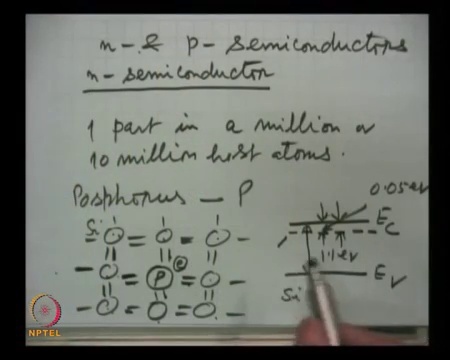 n- & p- semiconductors
n- semiconductor
1 part in a million or
10 million host atoms.
Posphorus - P
0.05 eV
Si
Ec
P e
1.1 eV
Ev
Si
NPTEL